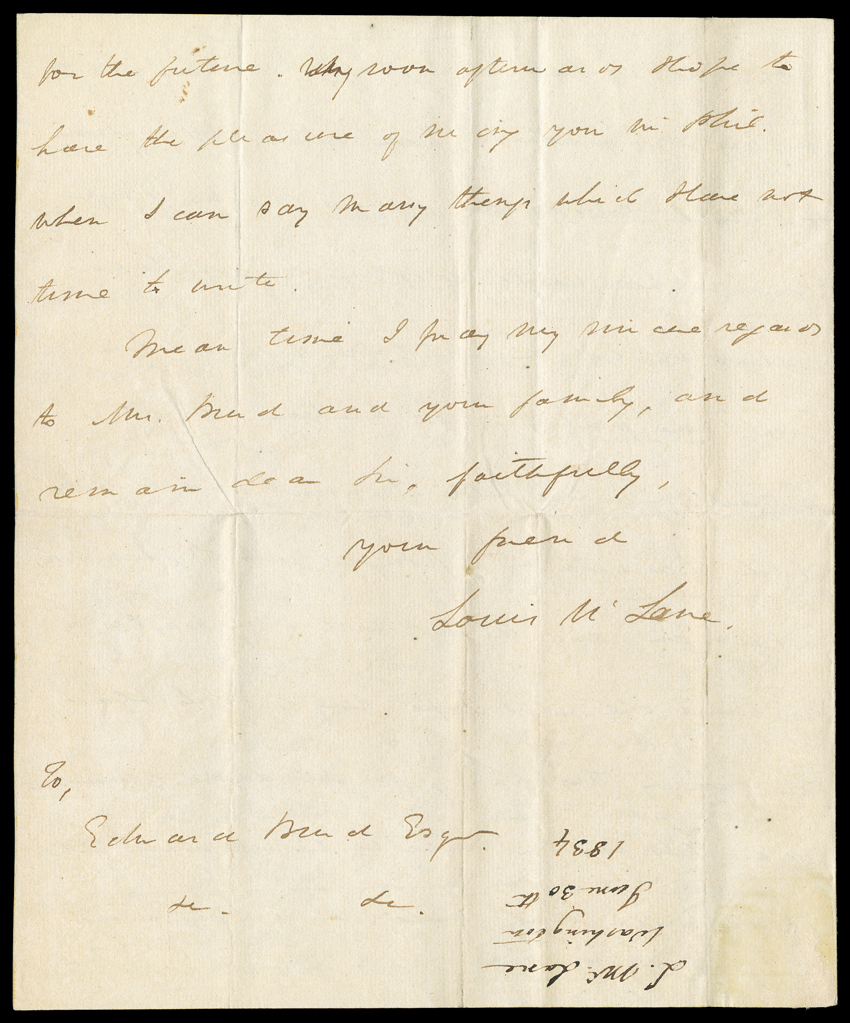 for the future. Very soon afterwards I hope to
have the pleasure of meeting you in Phil.
when I can say many things which I have not
time to write.
Mean time I pray my sincere regards
to Mr. and your family, and
remain dear Sir, faithfully,
your friend
Louis McLane.
To,
Edward Esqr.
&c. &c.
L. McLane
Washington
June 30th
1834